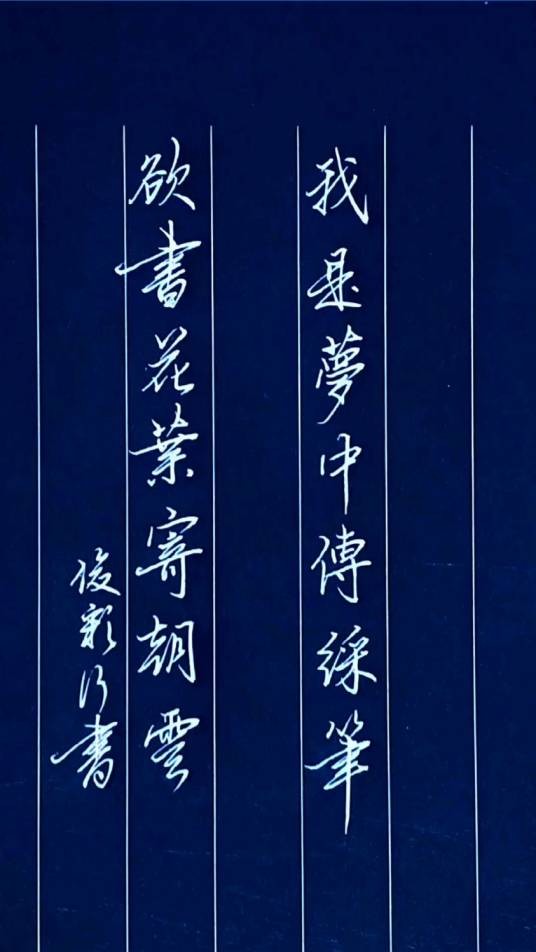 我是夢中傳綵筆
欲書花葉寄朝雲
俊彩行書